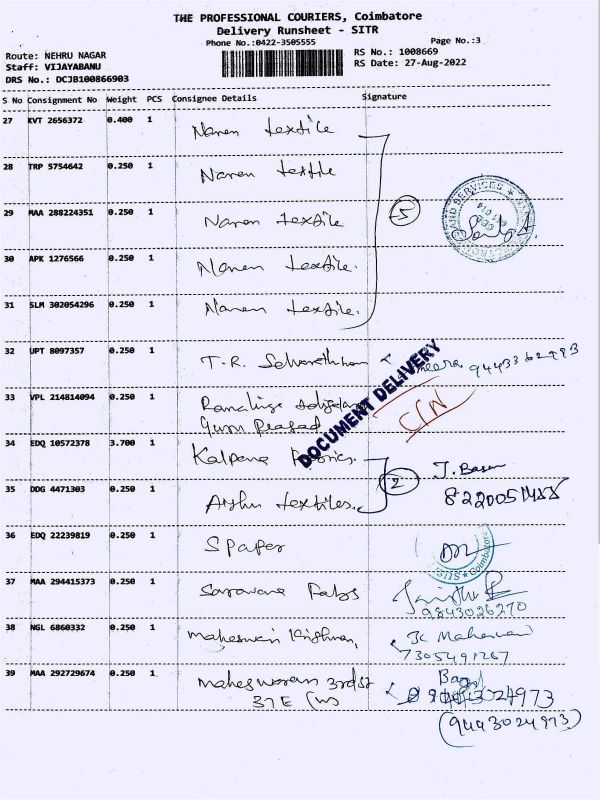 THE PROFESSIONAL COURIERS, Coimbatore
Delivery Runsheet - SITR
Phone No.:0422-3505555
Page No.:3
Route: NEHRU NAGAR
RS No.: 1008669
Staff: VIJAYABANU
RS Date: 27-Aug-2022
DRS No.: DCJB100866903
S No Consignment No Weight PCS Consignee Details Signature
27 KVT 2656372 0.400 1 Naren textile
28 TRP 5754642 0.250 1 Naren textile
29 MAA 288224351 0.250 1 Naren textile
5
30 APK 1276566 0.250 1 Naren textile.
31 SLM 302054296 0.250 1 Naren textile.
32 UPT 8097357 0.250 1 T.R.
DOCUMENT DELIVERY
33 VPL 214814094 0.250 1
Guru Prasad
C/N
34 EDQ 10572378 3.700 1 Kalpana Fabrics.
2
35 DDG 4471303 0.250 1 textiles.
36 EDQ 22239819 0.250 1 S paper
Coimbatore
37 MAA 294415373 0.250 1 Saravana Fabs
9843026270
38 NGL 6860332 0.250 1 Maheswari Krishnan
7305491267
39 MAA 292729674 0.250 1 Maheswaran 3rd st
37 E
(9443024973)